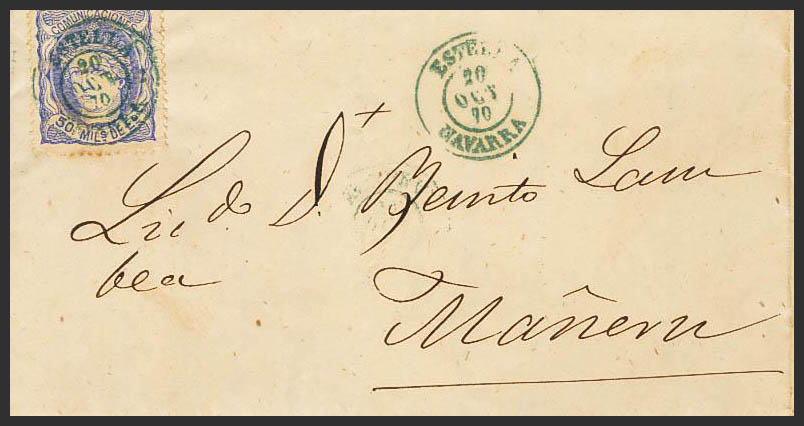 COMUNICACIONES
ESTELLA
20
OCT
70
50 MILS DE E
ESTELLA
20
OCT
70
NAVARRA
Lic do D. Benito Lam
bea
Mañeru